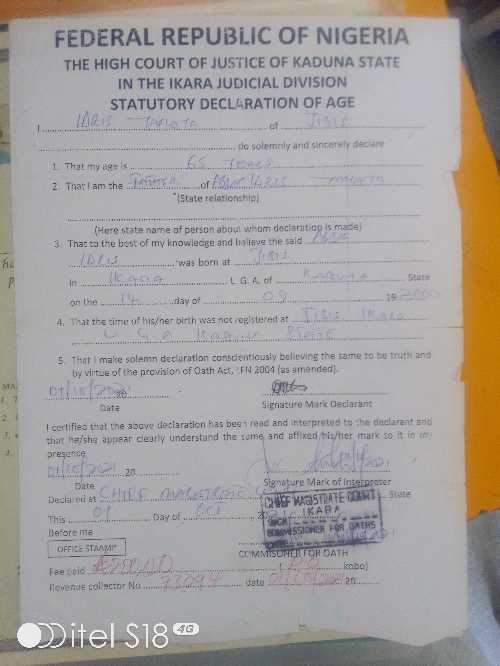 FEDERAL REPUBLIC OF NIGERIA
THE HIGH COURT OF JUSTICE OF KADUNA STATE
IN THE IKARA JUDICIAL DIVISION
STATUTORY DECLARATION OF AGE
I IDRIS of JIBIS
do solemnly and sincerely declare
1. That my age is 65 YEARS
2. That I am the FATHER of IDRIS
(State relationship)
(Here state name of person about whom declaration is made)
3. That to the best of my knowledge and believe the said
IDRIS was born at JIBIS
In IKARA L. G. A. of KADUNA State
on the 14 day of 09 19 2000
4. That the time of his/her birth was not registered at JIBIS IKARA
L G A KADUNA STATE
5. That I make solemn declaration conscientiously believing the same to be truth and
by virtue of the provision of Oath Act, LFN 2004 (as amended).
01/10/2021
Date Signature Mark Declarant
I certified that the above declaration has been read and interpreted to the declarant and
that he/she appear clearly understand the same and affixed his/her mark to it in my
presence
01/10/2021 20
Date Signature Mark of Interpreter
Declared at CHIEF MAGISTRATE State
CHIEF MAGISTRATE COURT
IKARA
COMMISSIONER FOR OATHS
This 01 Day of OCT
Before me
OFFICE STAMP
COMMISONER FOR OATH
Fee paid kobo)
Revenue collector No 73294 date 01/10/2021 20
itel S18 4G